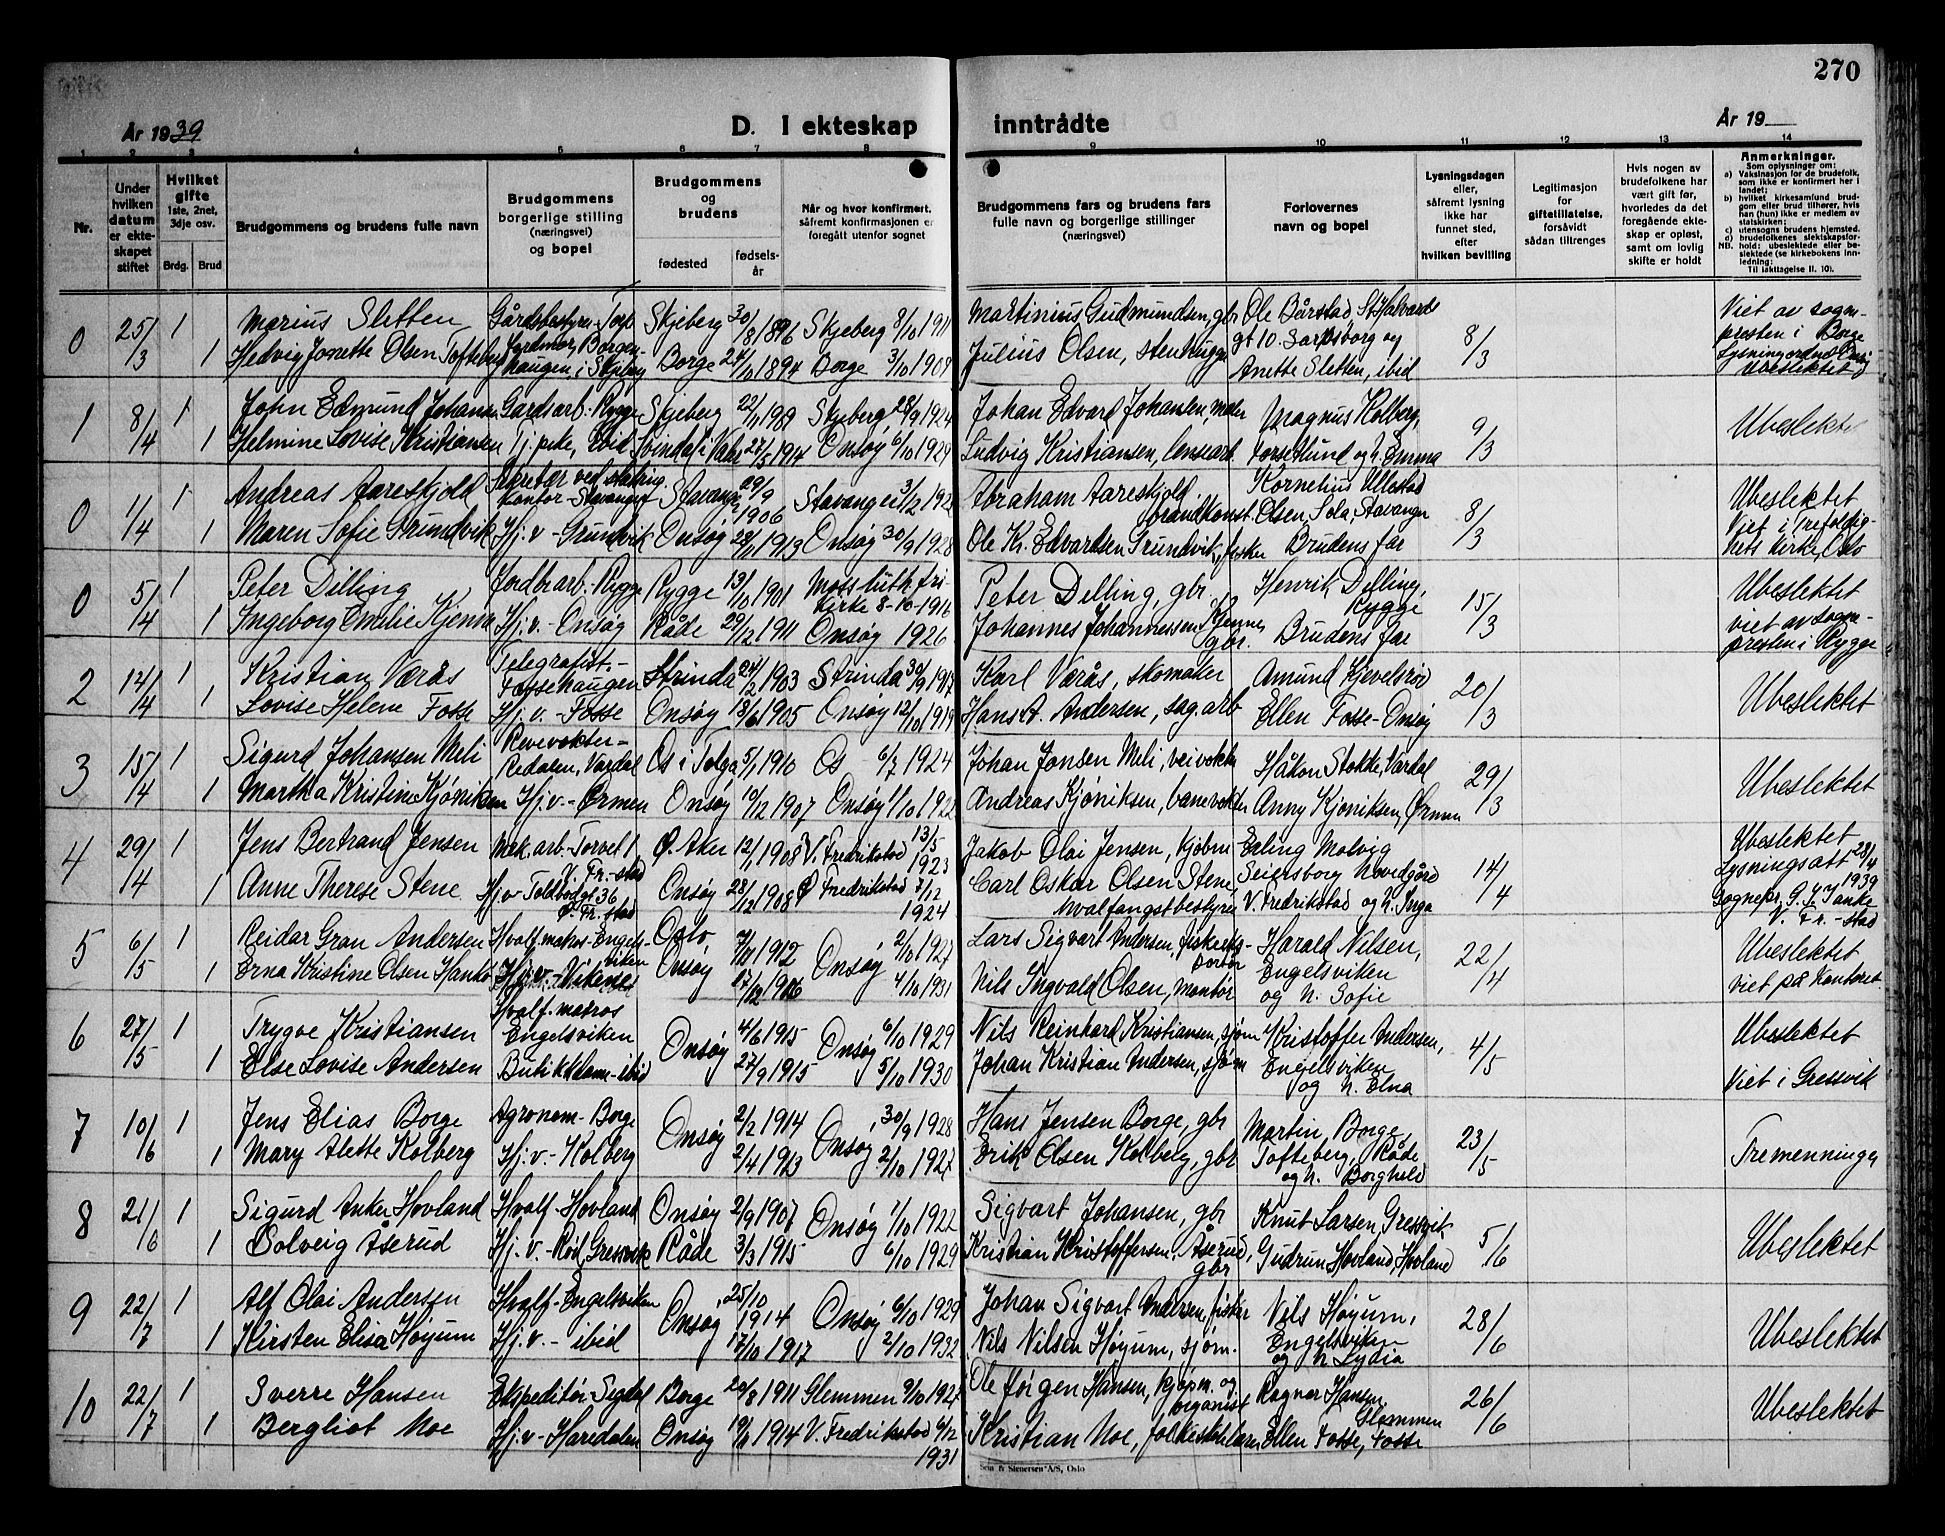 270
År 1939
D. I ekteskap inntrådte
År 19
1 2 3 4 5 6 7 8 9 10 11 12 13 14
Nr.
Under hvilken datum er ekteskapet stiftet
Hvilket gifte 1ste, 2net, 3dje osv.
Brdg. Brud
Brudgommens og brudens fulle navn
Brudgommens borgerlige stilling (næringsvei) og bopel
Brudgommens og brudens
fødested
fødselsår
Når og hvor konfirmert, såfremt konfirmasjonen er foregått utenfor sognet
Brudgommens fars og brudens fars fulle navn og borgerlige stillinger (næringsvei)
Forlovernes navn og bopel
Lysningsdagen eller, såfremt lysning ikke har funnet sted, efter hvilken bevilling
Legitimasjon for giftetillatelse, forsåvidt sådan tiltrenges
Hvis nogen av brudefolkene har vært gift før, hvorledes da det foregående ekteskap er opløst, samt om lovlig skifte er holdt
Anmerkninger.
Som oplysninger om:
a) Vaksinasjon for de brudefolk, som ikke er konfirmert her i landet;
b) hvilket kirkesamfund brudgom eller brud tilhører, hvis han (hun) ikke er medlem av statskirken;
c) utensogns brudens hjemsted.
d) brudefolkenes slektskapsforhold: ubeslektede eller beslektede (se kirkebokens innledning:
NB.
Til iakttagelse II. 10).
0 25/3 1 Marius Sletten Gårdsbestyrer Skjeberg 30/8 1896 Skjeberg 8/10 1911 Martinius Gudmundsen, gbr Ole Bårstad St. Halvards gt 10 Sarpsborg og 8/3 Viet av sognepresten i Borge
1 Hedvig Josette Olsen Tofteberg Borgenhaugen, i Skjeberg Borge 24/10 1894 Borge 3/10 1909 Julius Olsen, stenhugger Anette Sletten, ibid Ubeslektet
1 8/4 1 John Edmund Johansen Gardsarb. Rygge Skjeberg 22/11 1909 Skjeberg 28/9 1924 Johan Edvard Johansen, maler Magnus Kolberg, 9/3 Ubeslektet
1 Helmine Lovise Kristiansen Tj.pike, Ibid Svindal i Våler 27/5 1914 Onsøy 6/10 1929 Ludvig Kristiansen, lensearb. Torsetlund og h. Emma
0 1/4 1 Andreas Aareskjold Sekretær ved skattningskontor - Stavanger Stavanger 29/9 1906 Stavanger 3/12 192 Abraham Aareskjold brandkonst. Kornelius Ullestad Olsen, Sola, Stavanger 8/3 Ubeslektet
1 Maren Sofie Grundvik Hj.v - Grundvik Onsøy 28/11 1913 Onsøy 30/9 1928 Ole Kr. Edvardsen Grundvik, fisker Brudens far Viet i Trefoldighets kirke, Oslo
0 5/4 1 Peter Dilling Jordbr.arb. Rygge Rygge 13/10 1901 Moss luth. frikirke 8-10-1916 Peter Dilling, gbr. Henrik Dilling, Rygge 15/3 Ubeslektet
1 Ingeborg Emilie Kjenne Hj.v. - Onsøy Råde 29/12 1911 Onsøy 1926 Johannes Johannessen Kjenne, gbr. Brudens far viet av sognepresten i Rygge
2 12/4 1 Kristian Værås Telegrafist. - Fossehaugen Strinda 24/2 1903 Strinda 30/9 1917 Karl Værås, skomaker Amund Kjevelsrød 20/3 Ubeslektet
1 Lovise Helene Fosse Hj.v. - Fosse Onsøy 13/6 1905 Onsøy 12/10 1919 Hans A. Andersen, sag.arb Ellen Fosse - Onsøy
3 15/4 1 Sigurd Johansen Meli Revevokter - Redalen, Vardal Os i Tolga 5/1 1910 Os 6/7 1924 Johan Jonsen Meli, veivokter Håkon Stokke, Vardal 29/3 Ubeslektet
1 Martha Kristine Kjøniksen Hj.v. - Ørmen Onsøy 10/12 1907 Onsøy 1/10 1922 Andreas Kjøniksen, banevokter Anny Kjøniksen, Ørmen
4 29/4 1 Jens Bertrand Jensen Mek.arb. Torvet 1 V. Fr.-stad Ø. Aker 12/1 1908 V. Fredrikstad 13/5 1923 Jakob Olai Jensen, kjøbm Erling Molvig Seiersborg hovedgård 14/4 Ubeslektet Lysningsatt 28/4 1939
1 Anne Therese Stene Hj.v Toldbodgt 36 Ø. Fr.stad Onsøy 28/12 1908 Ø Fredrikstad 7/12 1924 Carl Oskar Olsen Stene, hvalfangstbestyrer V. Fredrikstad og h. Inga Sognepr. G. J. Tanke V. Fr.-stad
5 6/5 1 Reidar Gran Andersen Hvalf.matros - Engelsviken Oslo 7/11 1912 Onsøy 2/10 1927 Lars Sigvart Andersen, fiskeeksportør Harald Nilsen, 22/4 Ubeslektet
1 Erna Kristine Olsen Hankø Hj.v. - Vikene Onsøy 17/12 1916 4/10 1931 Nils Ingvald Olsen, montør Engelsviken og h. Sofie viet på kontoret.
6 27/5 1 Trygve Kristiansen Hvalf. matros Engelsviken Onsøy 4/6 1915 Onsøy 6/10 1929 Nils Reinhard Kristiansen, sjøm Kristoffer Andersen, 4/5 Ubeslektet
1 Else Lovise Andersen Butikkdame - ibid 27/9 1915 5/10 1930 Johan Kristian Andersen, sjøm Engelsviken og h. Elna Viet i Gressvik
7 10/6 1 Jens Elias Borge Agronom - Borge Onsøy 2/2 1914 Onsøy 30/9 1928 Hans Jensen Borge, gbr Martin Borge, 23/5 Tremenninger
1 Mary Alette Kolberg Hj.v. - Kolberg 2/4 1913 2/10 1927 Erik Olsen Kolberg, gbr Tofteberg, Råde og h. Borghild
8 21/6 1 Sigurd Anker Hovland Hvalf - Hovland Onsøy 2/9 1907 Onsøy 1/10 1922 Sigvart Johansen, gbr Knut Larsen, Gressvik 5/6 Ubeslektet
1 Solveig Åserud Hj.v. - Rød, Gressvik Råde 3/3 1915 6/10 1929 Kristian Kristoffersen Åserud, gbr Gudrun Hovland, Hovland
9 22/7 1 Alf Olai Andersen Hvalf - Engelsviken Onsøy 25/10 1914 Onsøy 6/10 1929 Johan Sigvart Andersen, fisker Nils Høyum, 28/6 Ubeslektet
1 Kirsten Elisa Høyum Hj.v. - ibid 17/10 1917 2/10 1932 Nils Nilsen Høyum, sjøm. Engelsviken og h Lydia
10 22/7 1 Sverre Hansen Ekspeditør - Sigdal Borge 20/8 1911 Glemmen 9/10 1927 Ole Jørgen Hansen, kjøpm. og organist Ragnar Hansen, Glemmen 26/6 Ubeslektet
1 Bergliot Moe Hj.v - Haredalen Onsøy 19/1 1914 V. Fredrikstad 6/12 1931 Kristian Moe, folkeskolelærer Ellen Fosse, Fosse
Sem & Stenersen A/S, Oslo